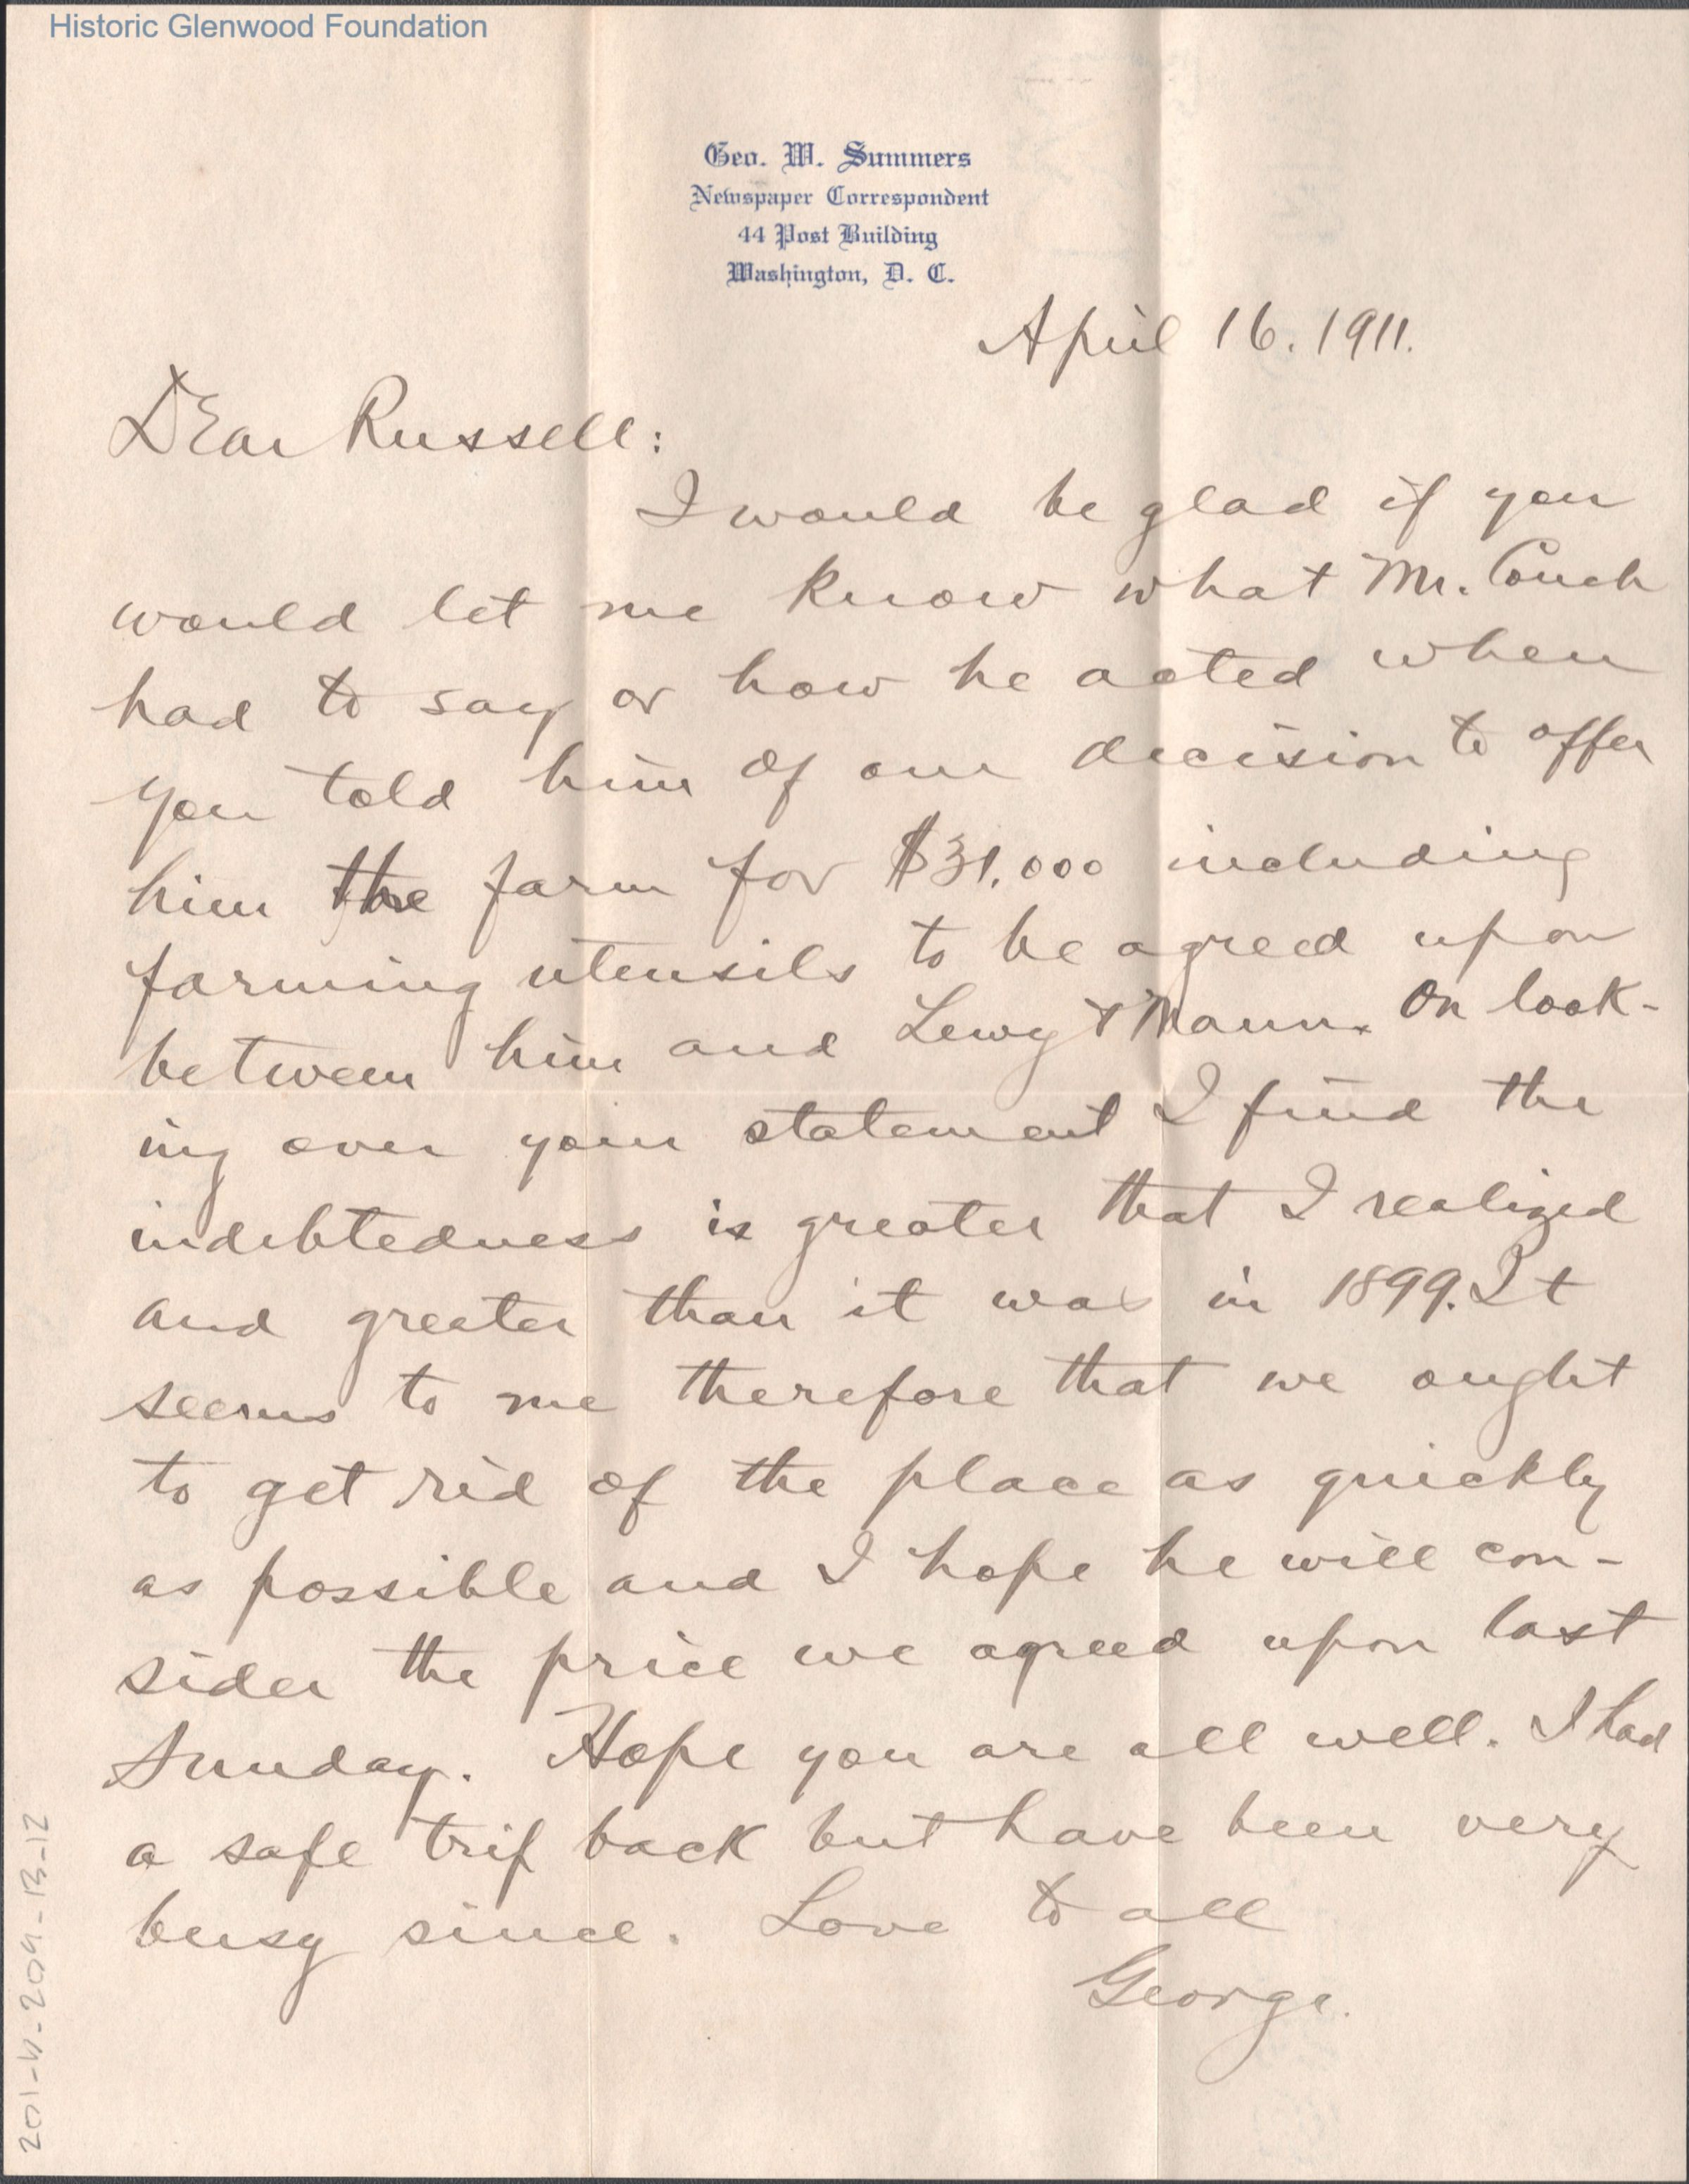 Historic Glenwood Foundation
Geo. W. Summers
Newspaper Correspondent
44 Post Building
Washington, D. C.
April 16. 1911.
Dear Russell:
I would be glad if you
would let me know what Mr. Couch
had to say or how he acted when
you told him of our decision to offer
him the farm for $31,000 including
farming utensils to be agreed upon
between him and Lewy & Mann. On look-
ing over your statement I find the
indebtedness is greater that I realized
and greater than it was in 1899. It
seems to me therefore that we ought
to get rid of the place as quickly
as possible and I hope he will con-
sider the price we agreed upon last
Sunday. Hope you are all well. I had
a safe trip back but have been very
busy since. Love to all
George.